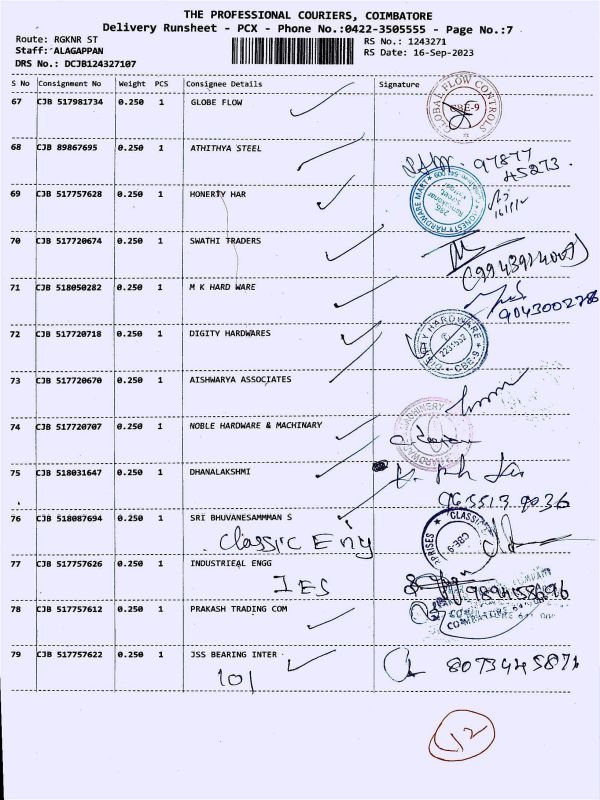 THE PROFESSIONAL COURIERS, COIMBATORE
Delivery Runsheet - PCX - Phone No.:0422-3505555 - Page No.:7
Route: RGKNR ST
RS No.: 1243271
Staff: ALAGAPPAN
RS Date: 16-Sep-2023
DRS No.: DCJB124327107
S No Consignment No Weight PCS Consignee Details Signature
67 CJB 517981734 0.250 1 GLOBE FLOW
GLOBAL FLOW CONTROLS CBE-9
68 CJB 89867695 0.250 1 ATHITHYA STEEL
97877
45273
69 CJB 517757628 0.250 1 HONERTY HAR
HONESTY HARDWARE MART
70 CJB 517720674 0.250 1 SWATHI TRADERS
71 CJB 518050282 0.250 1 M K HARD WARE
9043002786
72 CJB 517720718 0.250 1 DIGITY HARDWARES
HARDWARE CBE-9
73 CJB 517720670 0.250 1 AISHWARYA ASSOCIATES
74 CJB 517720707 0.250 1 NOBLE HARDWARE & MACHINARY
75 CJB 518031647 0.250 1 DHANALAKSHMI
76 CJB 518087694 0.250 1 SRI BHUVANESAMMMAN S
Classic Eng
CLASSIC
77 CJB 517757626 0.250 1 INDUSTRIEAL ENGG
IES
78 CJB 517757612 0.250 1 PRAKASH TRADING COM
79 CJB 517757622 0.250 1 JSS BEARING INTER
101
8073445871
12